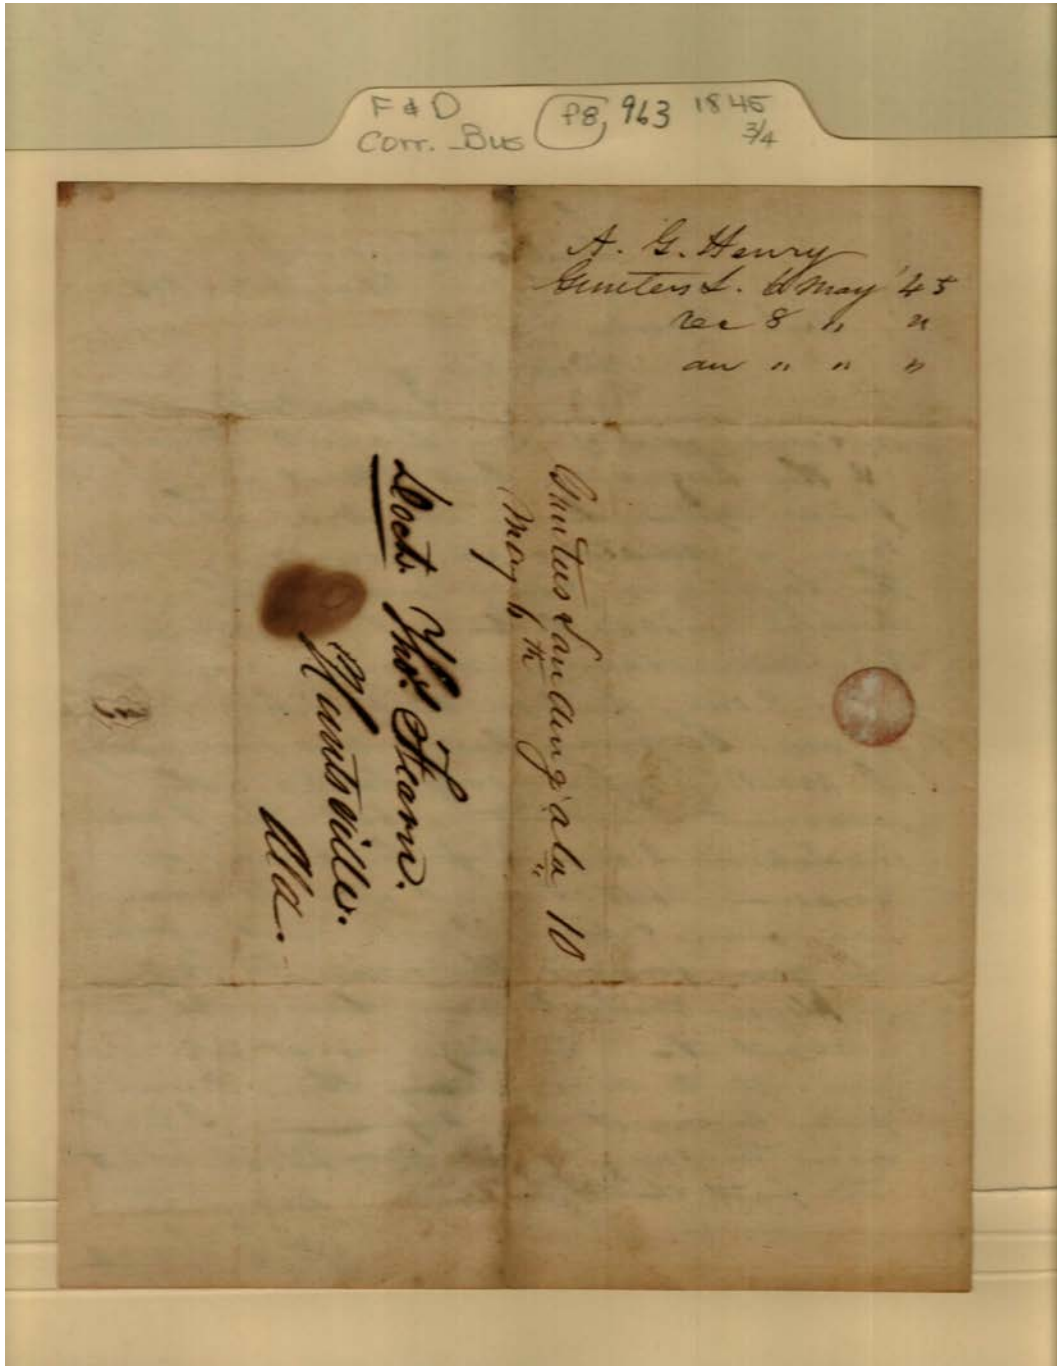 F & D
Corr. Bus
P8, 963 1845
3/4
A. G. Henry
Gunters L. 6 May '45
rec 8 " "
an " " "
Gunters Landing ala 10
May 6th
Doct. Tho.s Fearn.
Huntsville.
Ala.